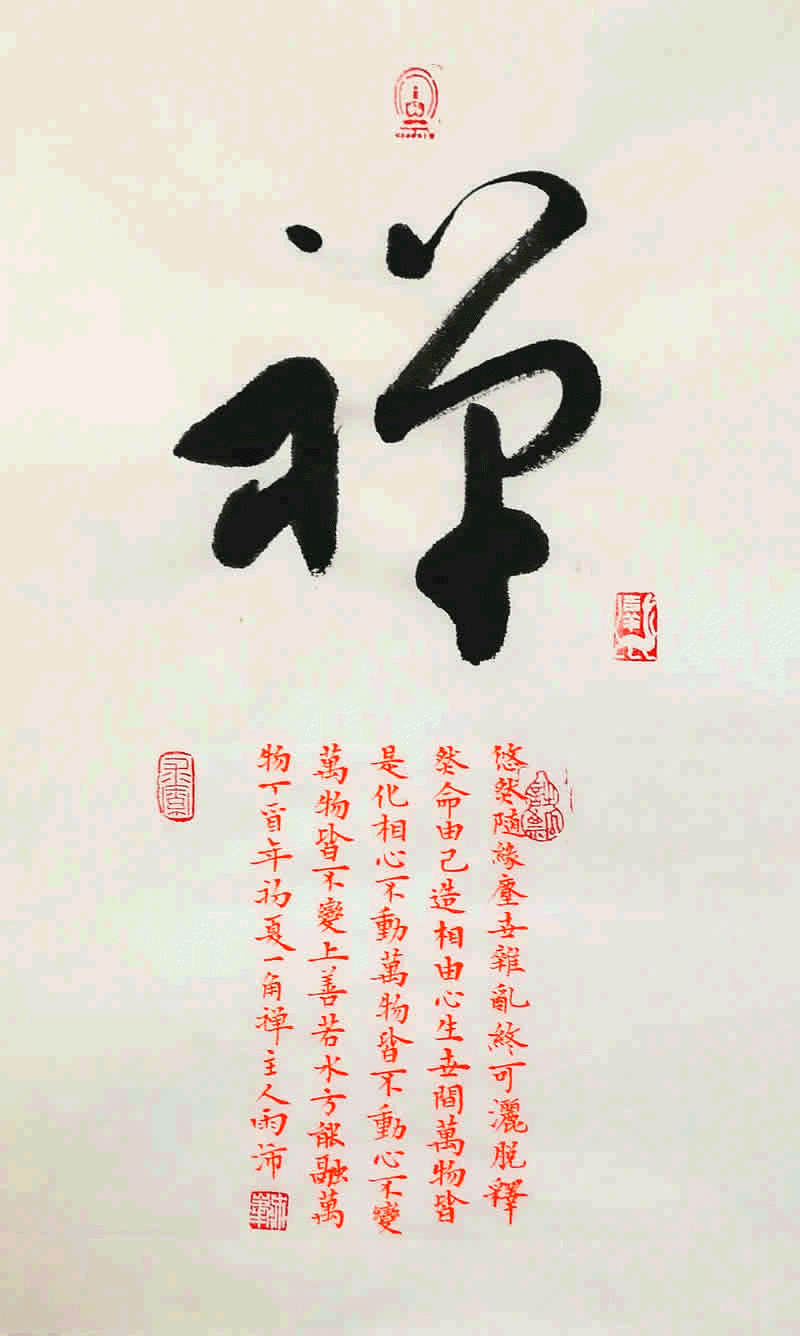 禅
悠然隨緣塵世雜亂終可灑脫釋
然命由己造相由心生世間萬物皆
是化相心不動萬物皆不動心不變
萬物皆不變上善若水方能融萬
物丁酉年初夏一角禅主人雨沛